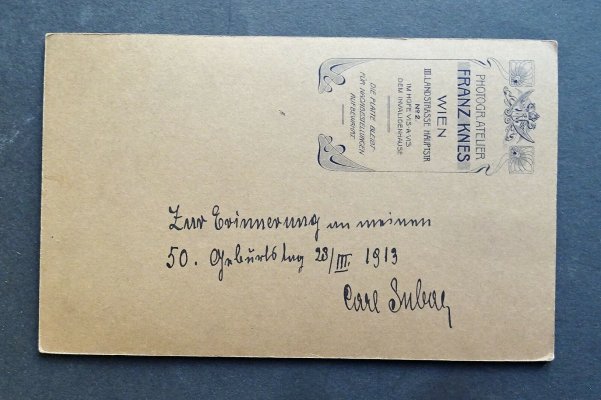 PHOTOGR. ATELIER
FRANZ KNES
WIEN
III. LANDSTRASSE HAUPTSTR.
No 2.
IM HOFE VIS-A-VIS
DEM INVALIDENHAUSE
DIE PLATTE BLEIBT
FÜR NACHBESTELLUNGEN
AUFBEWAHRT
Zur Erinnerung an meinen
50. Geburtstag 28/III. 1913
Carl